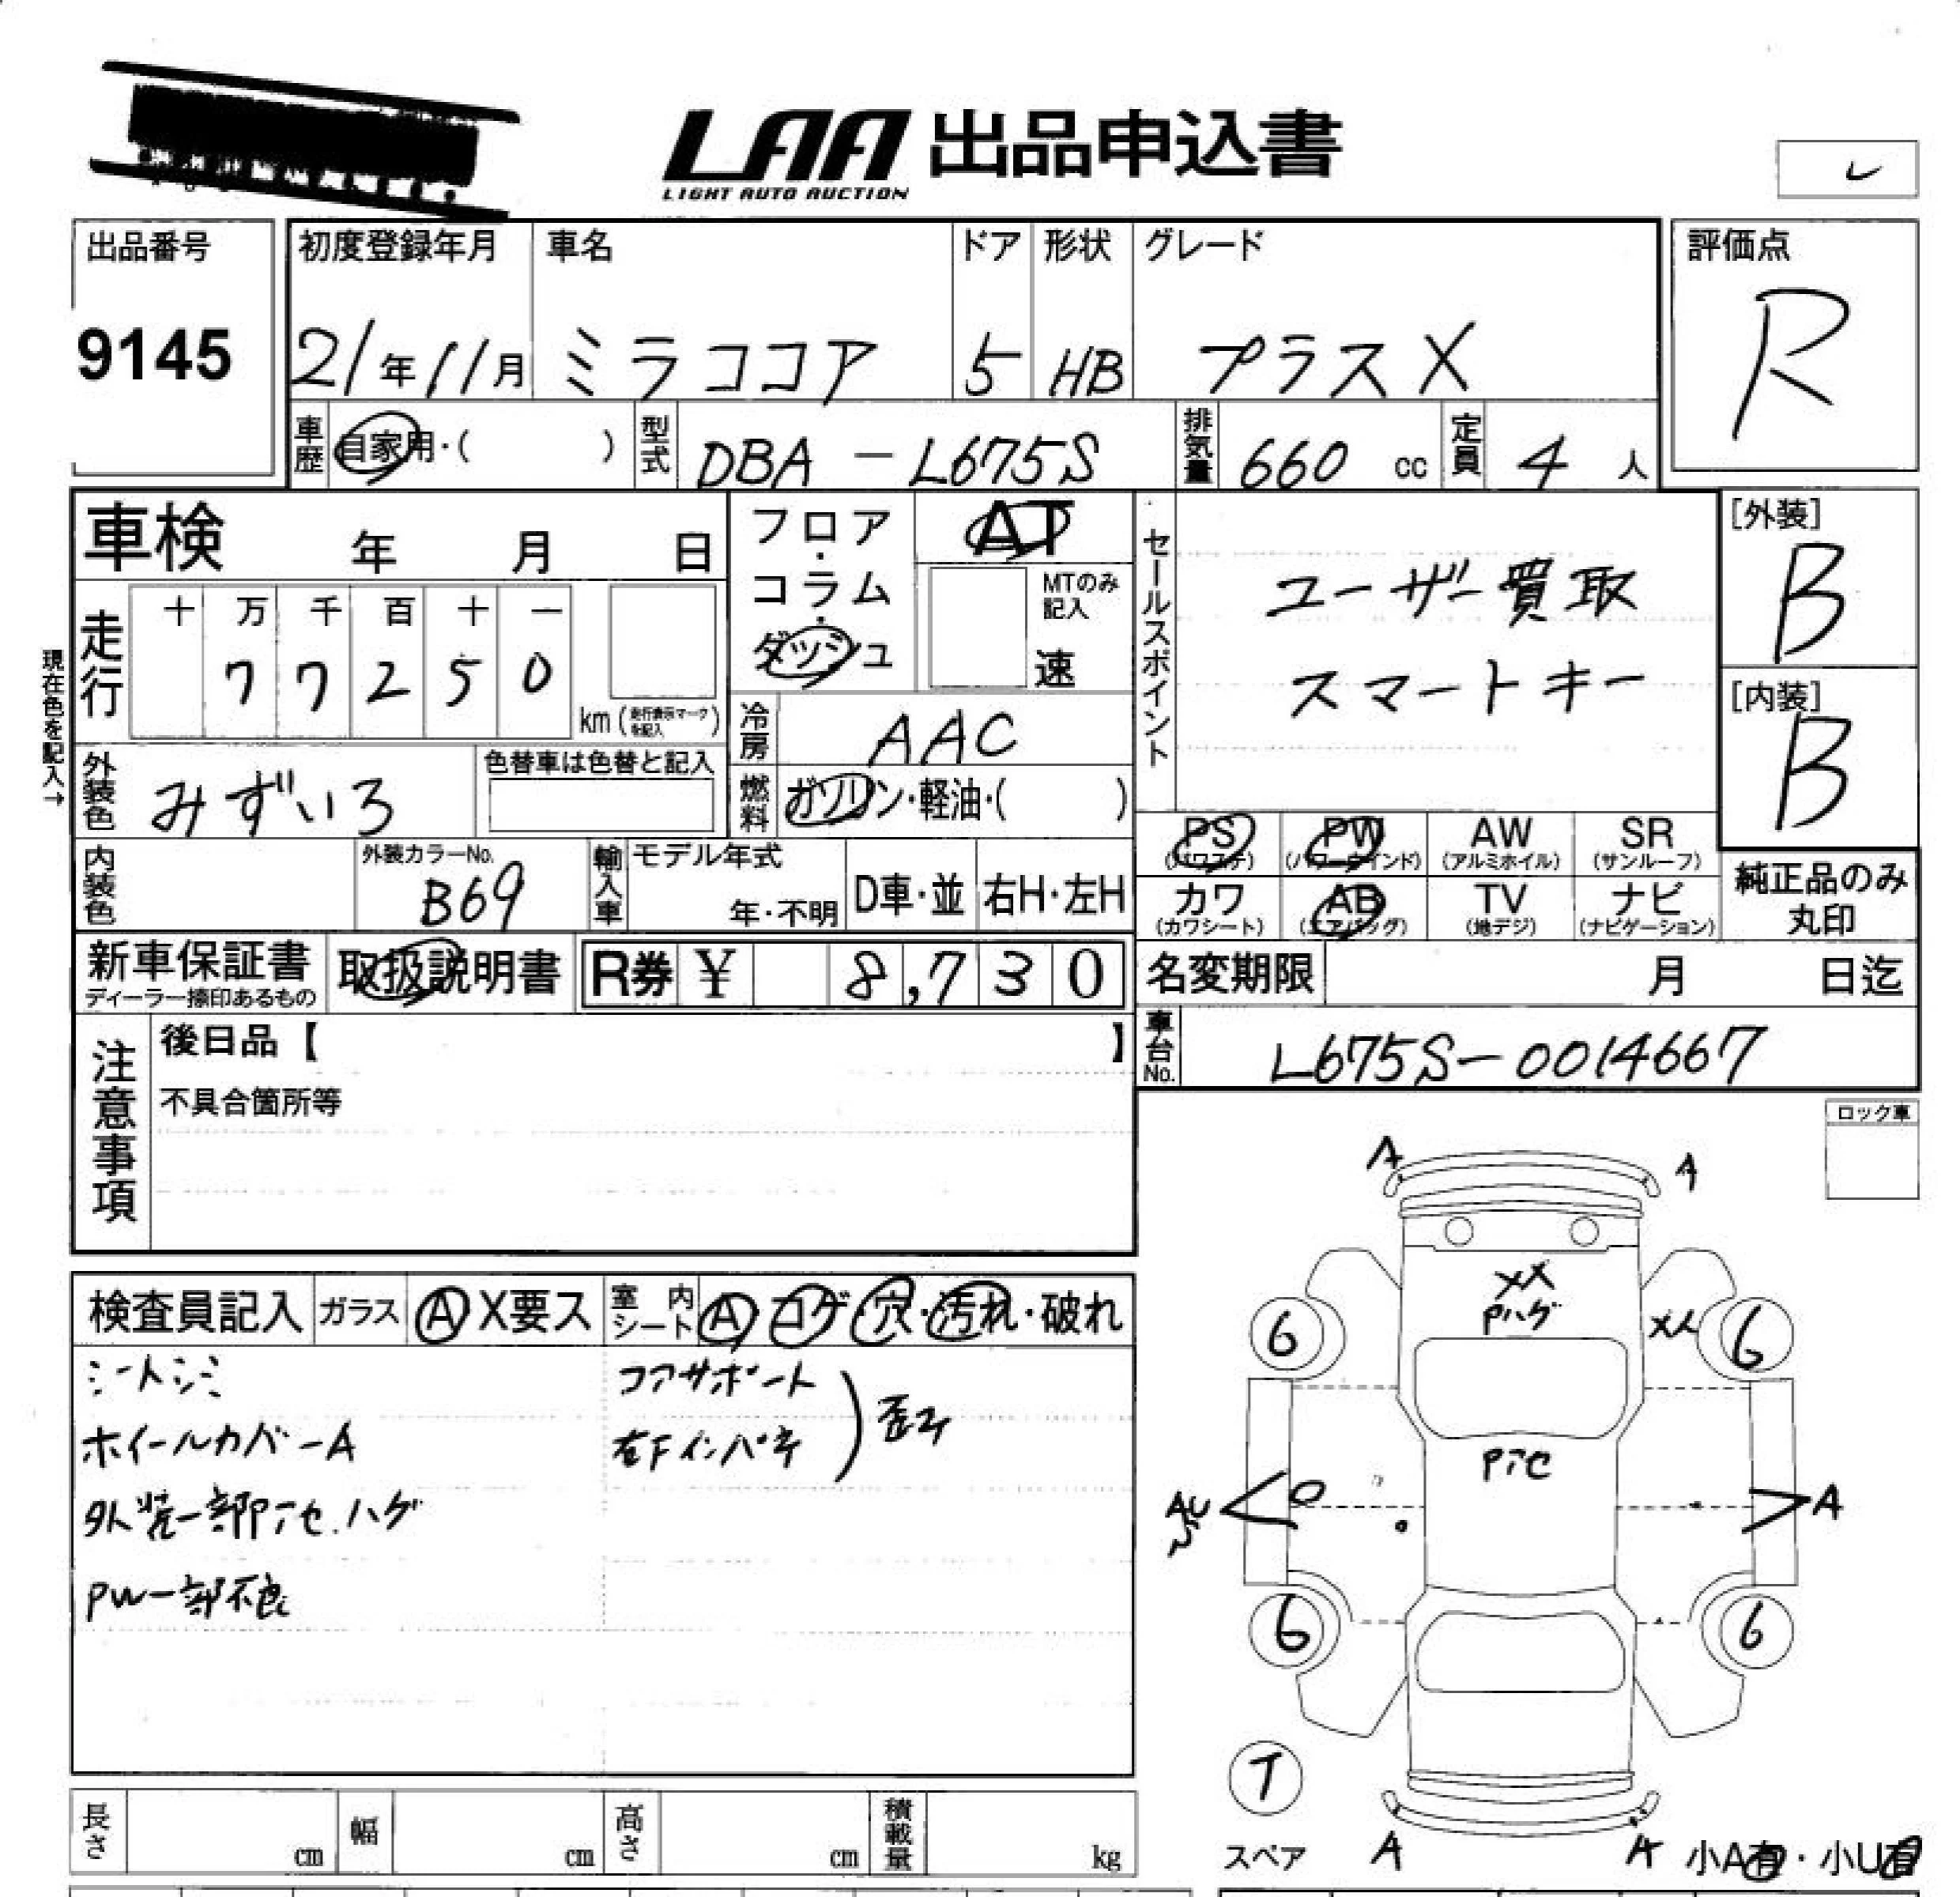 LAA 出品申込書
LIGHT AUTO AUCTION
レ
出品番号
9145
初度登録年月 車名 ドア 形状 グレード
21年11月 ミラココア 5 HB プラスX
評価点
R
車歴 自家用・( ) 型式 DBA-L675S 排気量 660 cc 定員 4 人
車検 年 月 日
フロア・コラム・ダッシュ
AT
MTのみ記入
速
セールスポイント
ユーザー買取
スマートキー
[外装]
B
[内装]
B
現在色を記入→
走行 十 万 千 百 十 一
7 7 2 5 0
km (走行表示マークを記入)
冷房 AAC
外装色 みずいろ
色替車は色替と記入
燃料 ガソリン・軽油・( )
PS AW SR
(パワステ) (パワーウインド) (アルミホイル) (サンルーフ)
PW
内装色 外装カラーNo. B69
輸入車 モデル年式 年・不明 D車・並 右H・左H
カワ AB TV ナビ
(カワシート) (エアバッグ) (地デジ) (ナビゲーション)
純正品のみ丸印
新車保証書
ディーラー捺印あるもの
取扱説明書
R券 ¥ 8,730
名変期限 月 日迄
車台No. L675S-0014667
注意事項
後日品【 】
不具合箇所等
ロック車
検査員記入 ガラス A X要ス 室内シート A・コゲ・穴・汚れ・破れ
シートシミ
ホイールカバーA
外装一部Pアセ.ハゲ
PW一部不良
コアサポート
右Fインパネ
歪み
A A
XX
Pハゲ
XX
6 6
Pアセ
AU
A
6 6
T
スペア
A A
小A有・小U有
長さ cm 幅 cm 高さ cm 積載量 kg